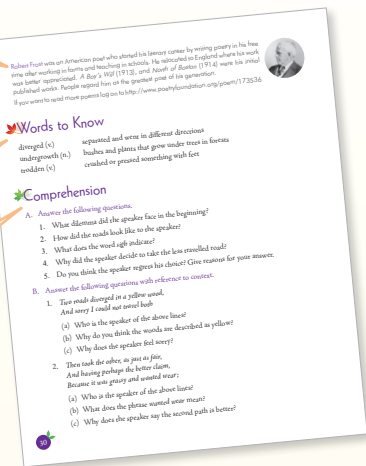 Robert Frost was an American poet who started his literary career by writing poetry in his free
time after working in farms and teaching in schools. He relocated to England where his work
was better appreciated. A Boy's Will (1913), and North of Boston (1914) were his initial
published works. People regard him as the greatest poet of his generation.
If you want to read more poems log on to http://www.poetryfoundation.org/poem/173536
Words to Know
diverged (v.) separated and went in different directions
undergrowth (n.) bushes and plants that grow under trees in forests
trodden (v.) crushed or pressed something with feet
Comprehension
A. Answer the following questions.
1. What dilemma did the speaker face in the beginning?
2. How did the roads look like to the speaker?
3. What does the word sigh indicate?
4. Why did the speaker decide to take the less travelled road?
5. Do you think the speaker regrets his choice? Give reasons for your answer.
B. Answer the following questions with reference to context.
1. Two roads diverged in a yellow wood,
And sorry I could not travel both
(a) Who is the speaker of the above lines?
(b) Why do you think the woods are described as yellow?
(c) Why does the speaker feel sorry?
2. Then took the other, as just as fair,
And having perhaps the better claim,
Because it was grassy and wanted wear;
(a) Who is the speaker of the above lines?
(b) What does the phrase wanted wear mean?
(c) Why does the speaker say the second path is better?
30